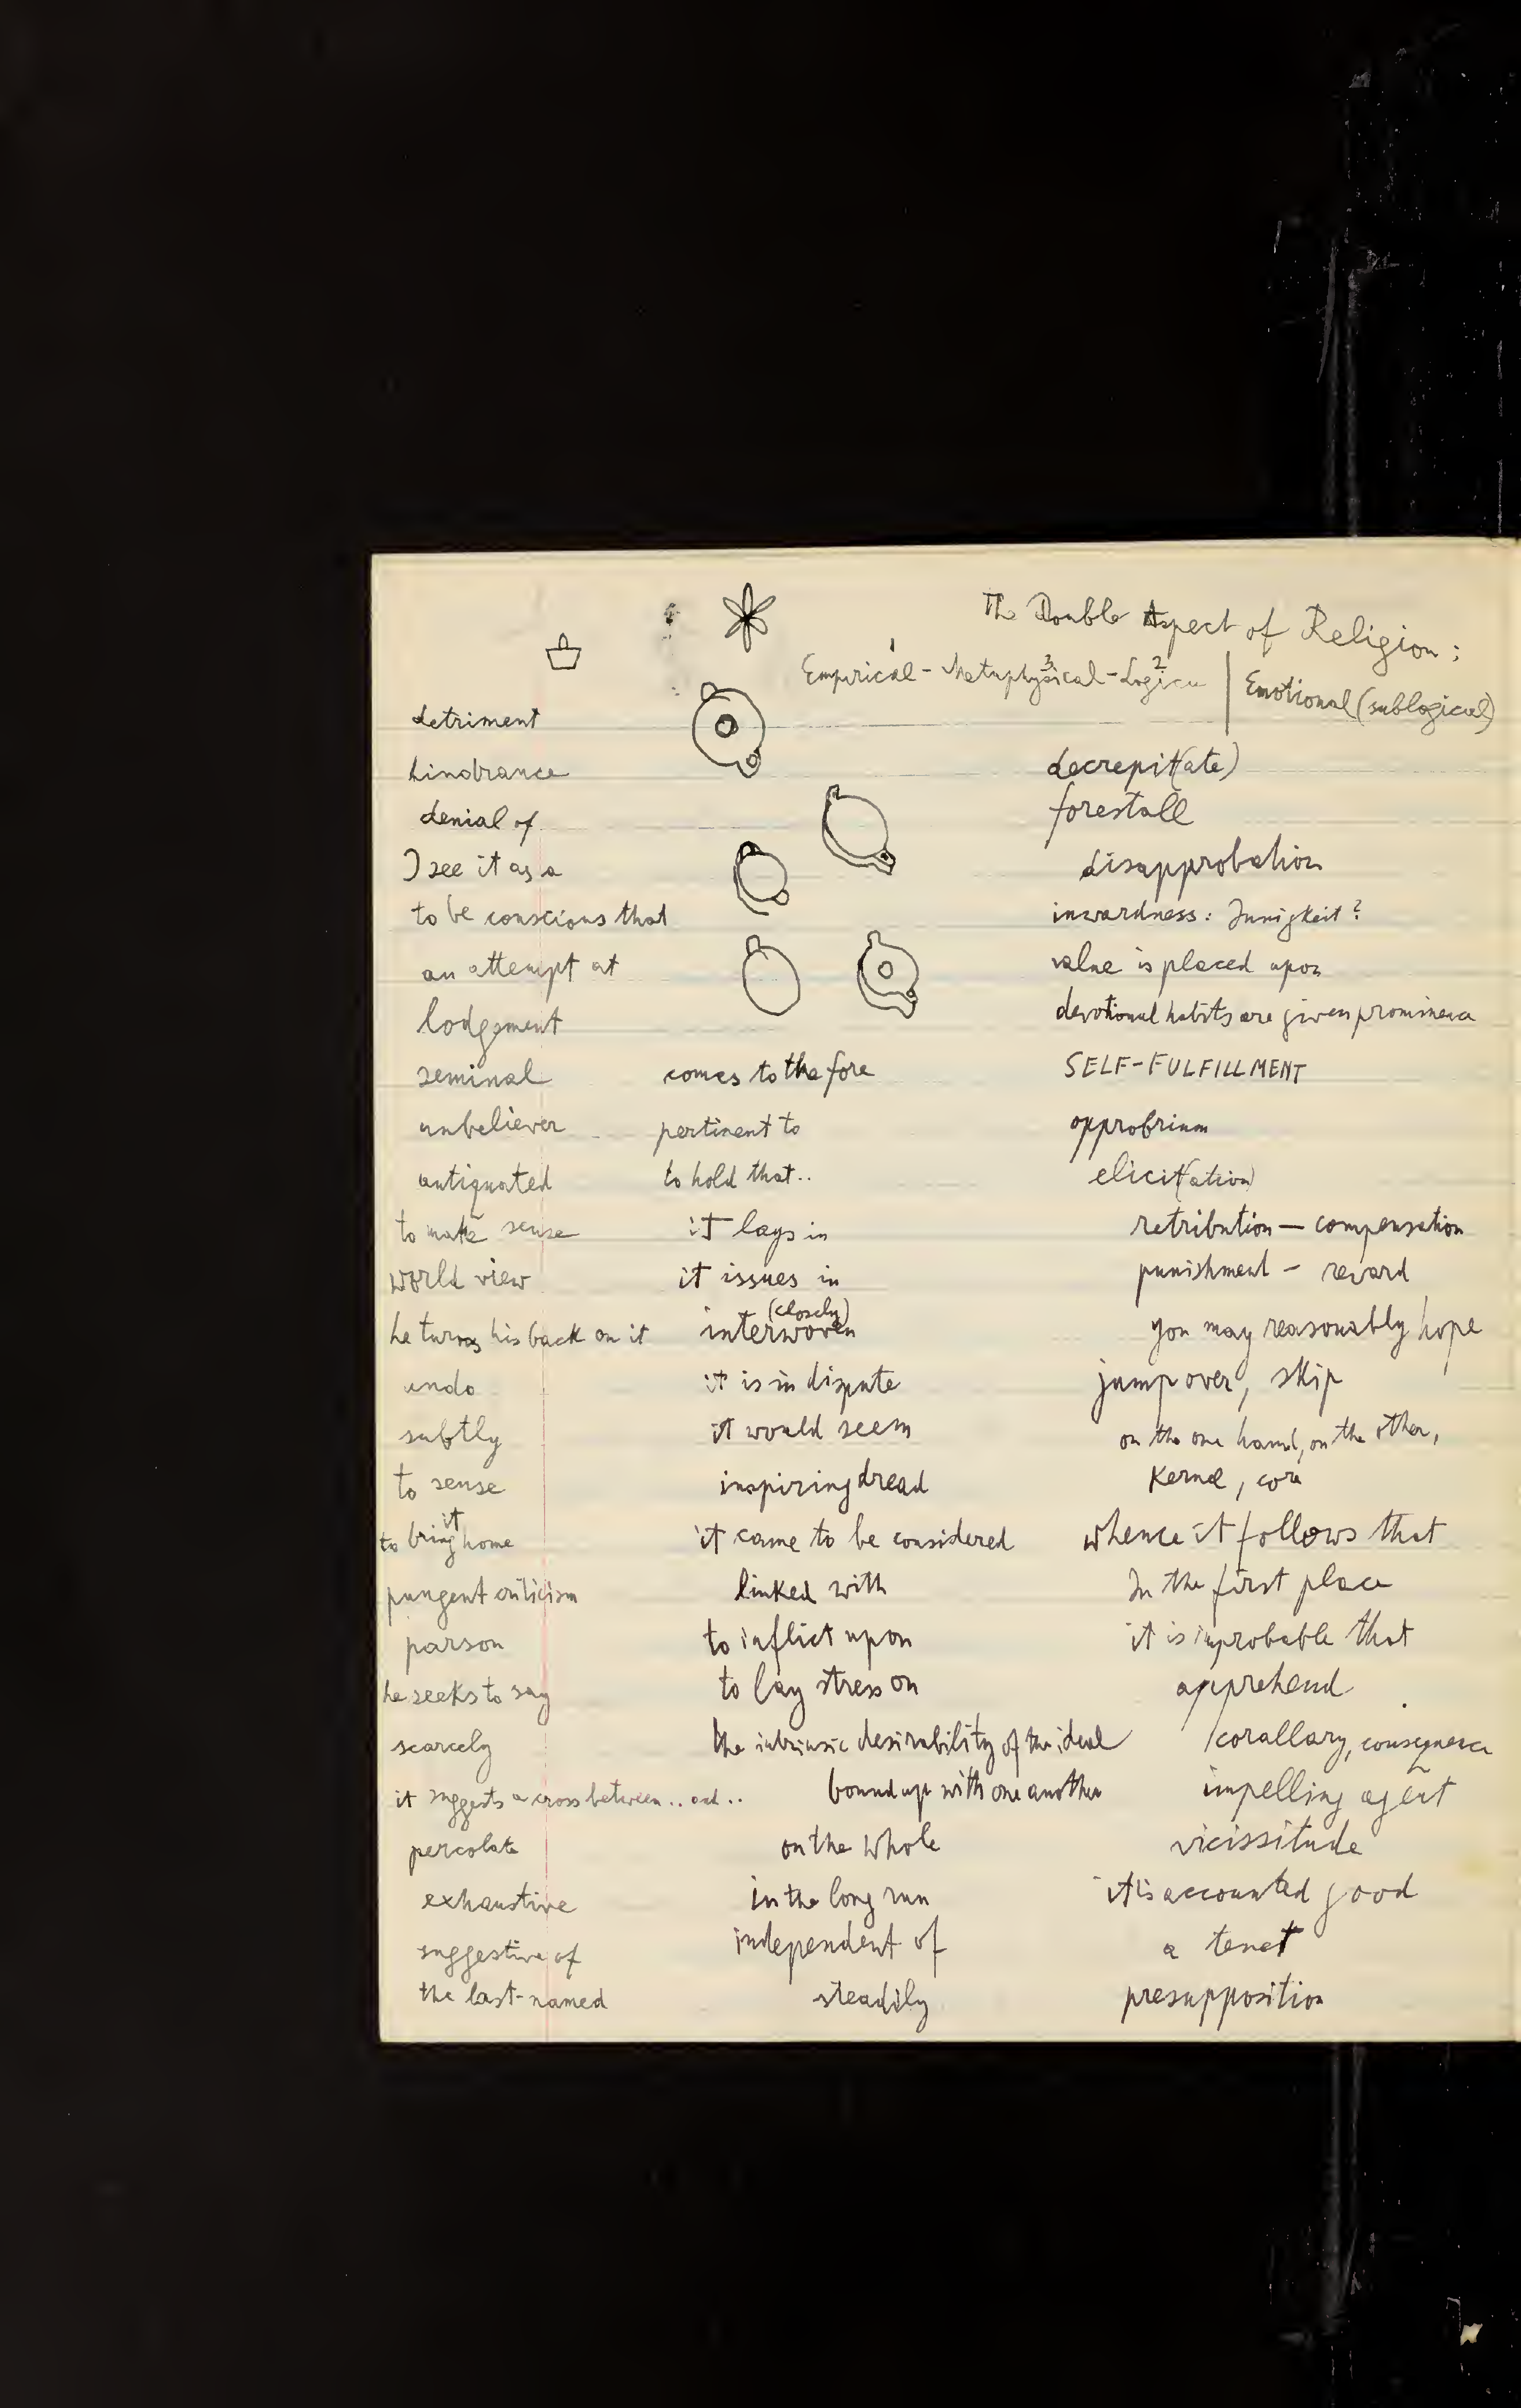 The Double Aspect of Religion:
1 3 2
Empirical - Metaphysical - Logica | Emotional (sublogical)
detriment
hindrance
denial of
I see it as a
to be conscious that
an attempt at
lodgement
seminal
unbeliever
antiquated
to make sense
world view
he turns his back on it
undo
subtly
to sense
to bring it home
pungent criticism
parson
he seeks to say
scarcely
it suggests a cross between .. and ..
percolate
exhaustive
suggestive of
the last-named
comes to the fore
pertinent to
to hold that..
it lays in
it issues in
(closely)
interwoven
it is in dispute
it would seem
inspiring dread
it came to be considered
linked with
to inflict upon
to lay stress on
the intrinsic desirability of the ideal
bound up with one another
on the whole
in the long run
independent of
steadily
decrepit(ate)
forestall
disapprobation
inwardness: Innigkeit?
value is placed upon
devotional habits are given prominence
SELF-FULFILLMENT
opprobrium
elicit(ation)
retribution — compensation
punishment - reward
you may reasonably hope
jump over, skip
on the one hand, on the other,
Kernel, core
whence it follows that
In the first place
it is improbable that
apprehend
corallary, consequence
impelling agent
vicissitude
it is accounted good
a tenet
presupposition